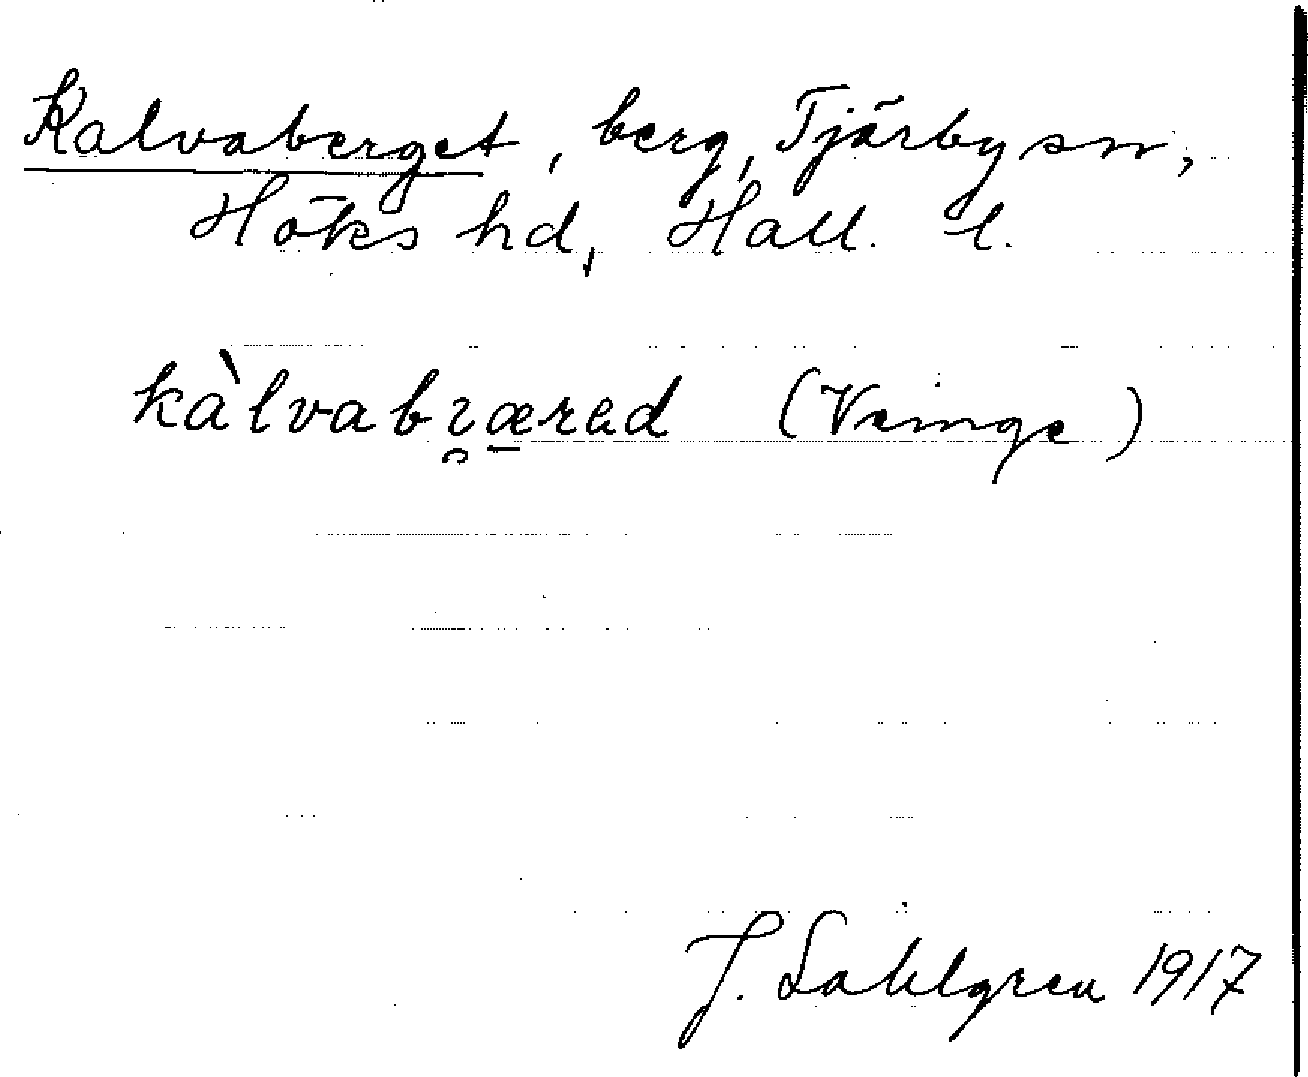 Kalvaberget, berg, Tjärby sn,
Höks hd, Hall. l.
(Veinge)
J. Sahlgren 1917